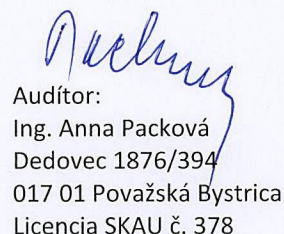 Audítor:
Ing. Anna Packová
Dedovec 1876/394
017 01 Považská Bystrica
Licencia SKAU č. 378